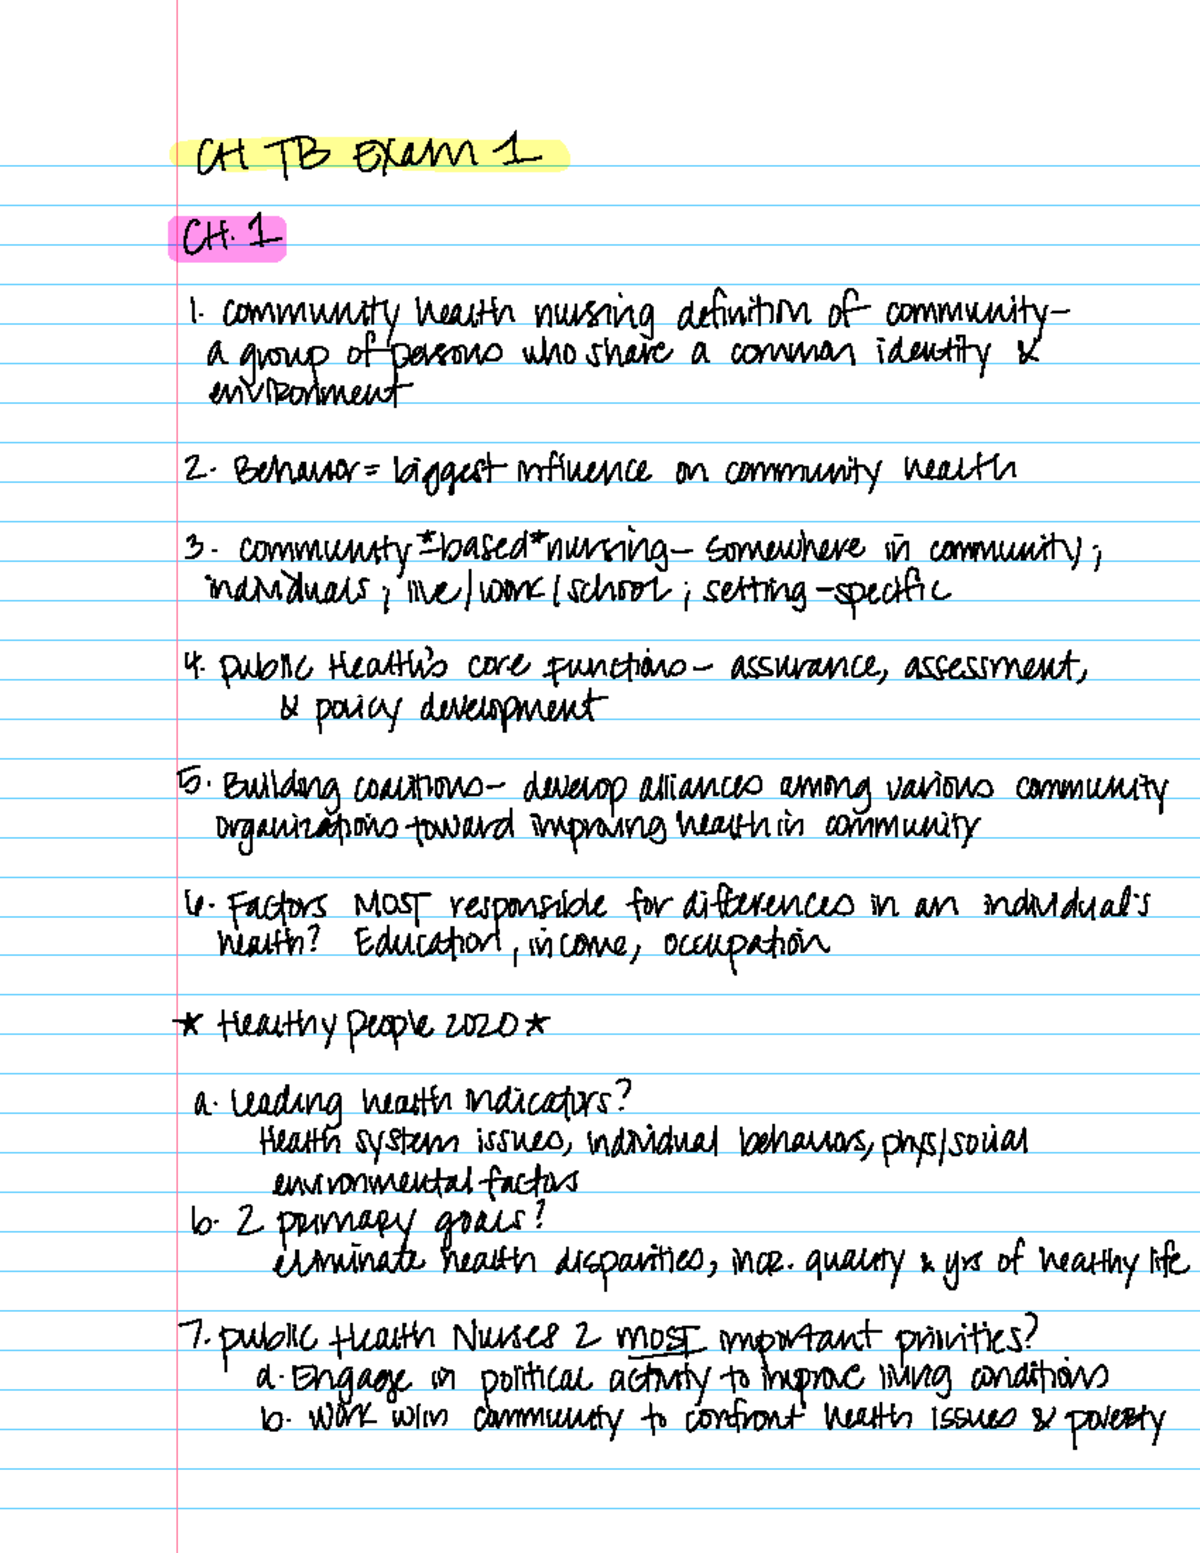 CH TB Exam 1
CH. 1
1. community health nursing definition of community-
a group of persons who share a common identity &
environment
2. Behavior = biggest influence on community health
3. community *-based* nursing - somewhere in community;
individuals; live/work/school; setting-specific
4. public Health's core functions - assurance, assessment,
& policy development
5. Building coalitions - develop alliances among various community
organizations toward improving health in community
6. Factors MOST responsible for differences in an individual's
health? Education, income, occupation
★ Healthy People 2020 ★
a. Leading health indicators?
Health system issues, individual behaviors, phys/social
environmental factors
b. 2 primary goals?
eliminate health disparities, incr. quality & yrs of healthy life
7. public Health Nurses 2 most important priorities?
a. Engage in political activity to improve living conditions
b. work w/in community to confront health issues & poverty